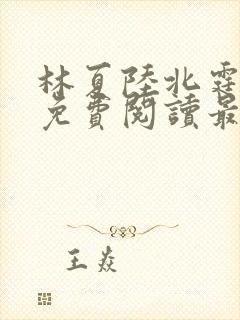 林夏陸北霆
免費閱讀最
王焱